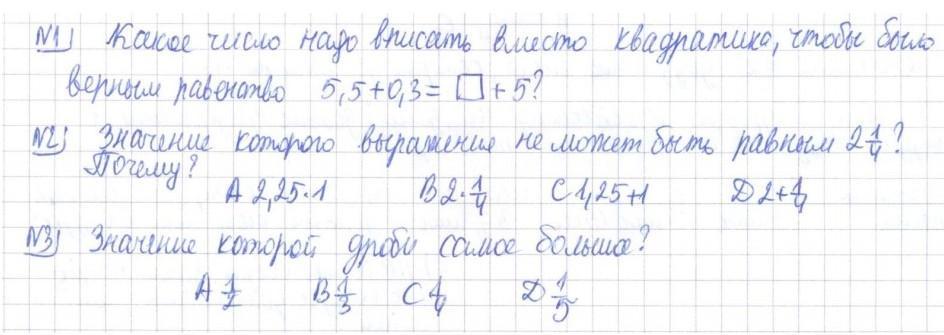 №1) Какое число надо вписать вместо квадратика, чтобы было
верным равенство 5,5+0,3=□+5?
№2) Значение которого выражения не может быть равным 2 1/4?
Почему?
A 2,25·1 B 2·1/4 C 1,25+1 D 2+1/4
№3) Значение которой дроби самое большое?
A 1/2 B 1/3 C 1/4 D 1/5